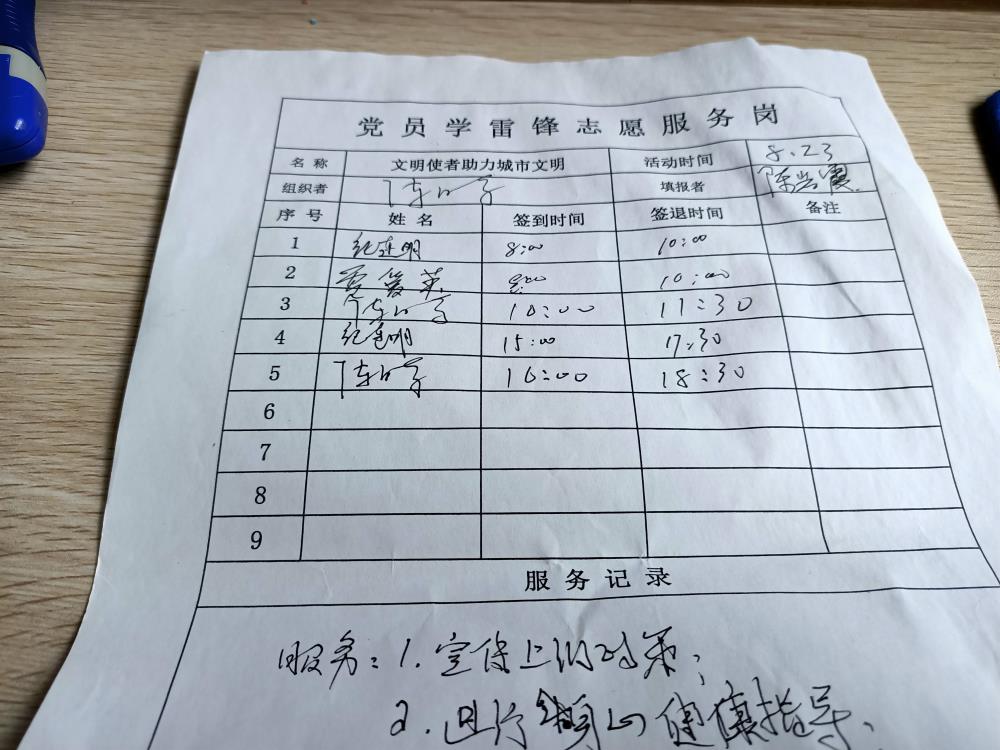 党员学雷锋志愿服务岗
名称 文明使者助力城市文明 活动时间 8.23
组织者 填报者
序号 姓名 签到时间 签退时间 备注
1 纪连明 8:00 10:00
2 8:00 10:00
3 10:00 11:30
4 纪连明 15:00 17:30
5 16:00 18:30
6
7
8
9
服务记录
服务:1.宣传上的政策;
2.进行 健康指导.